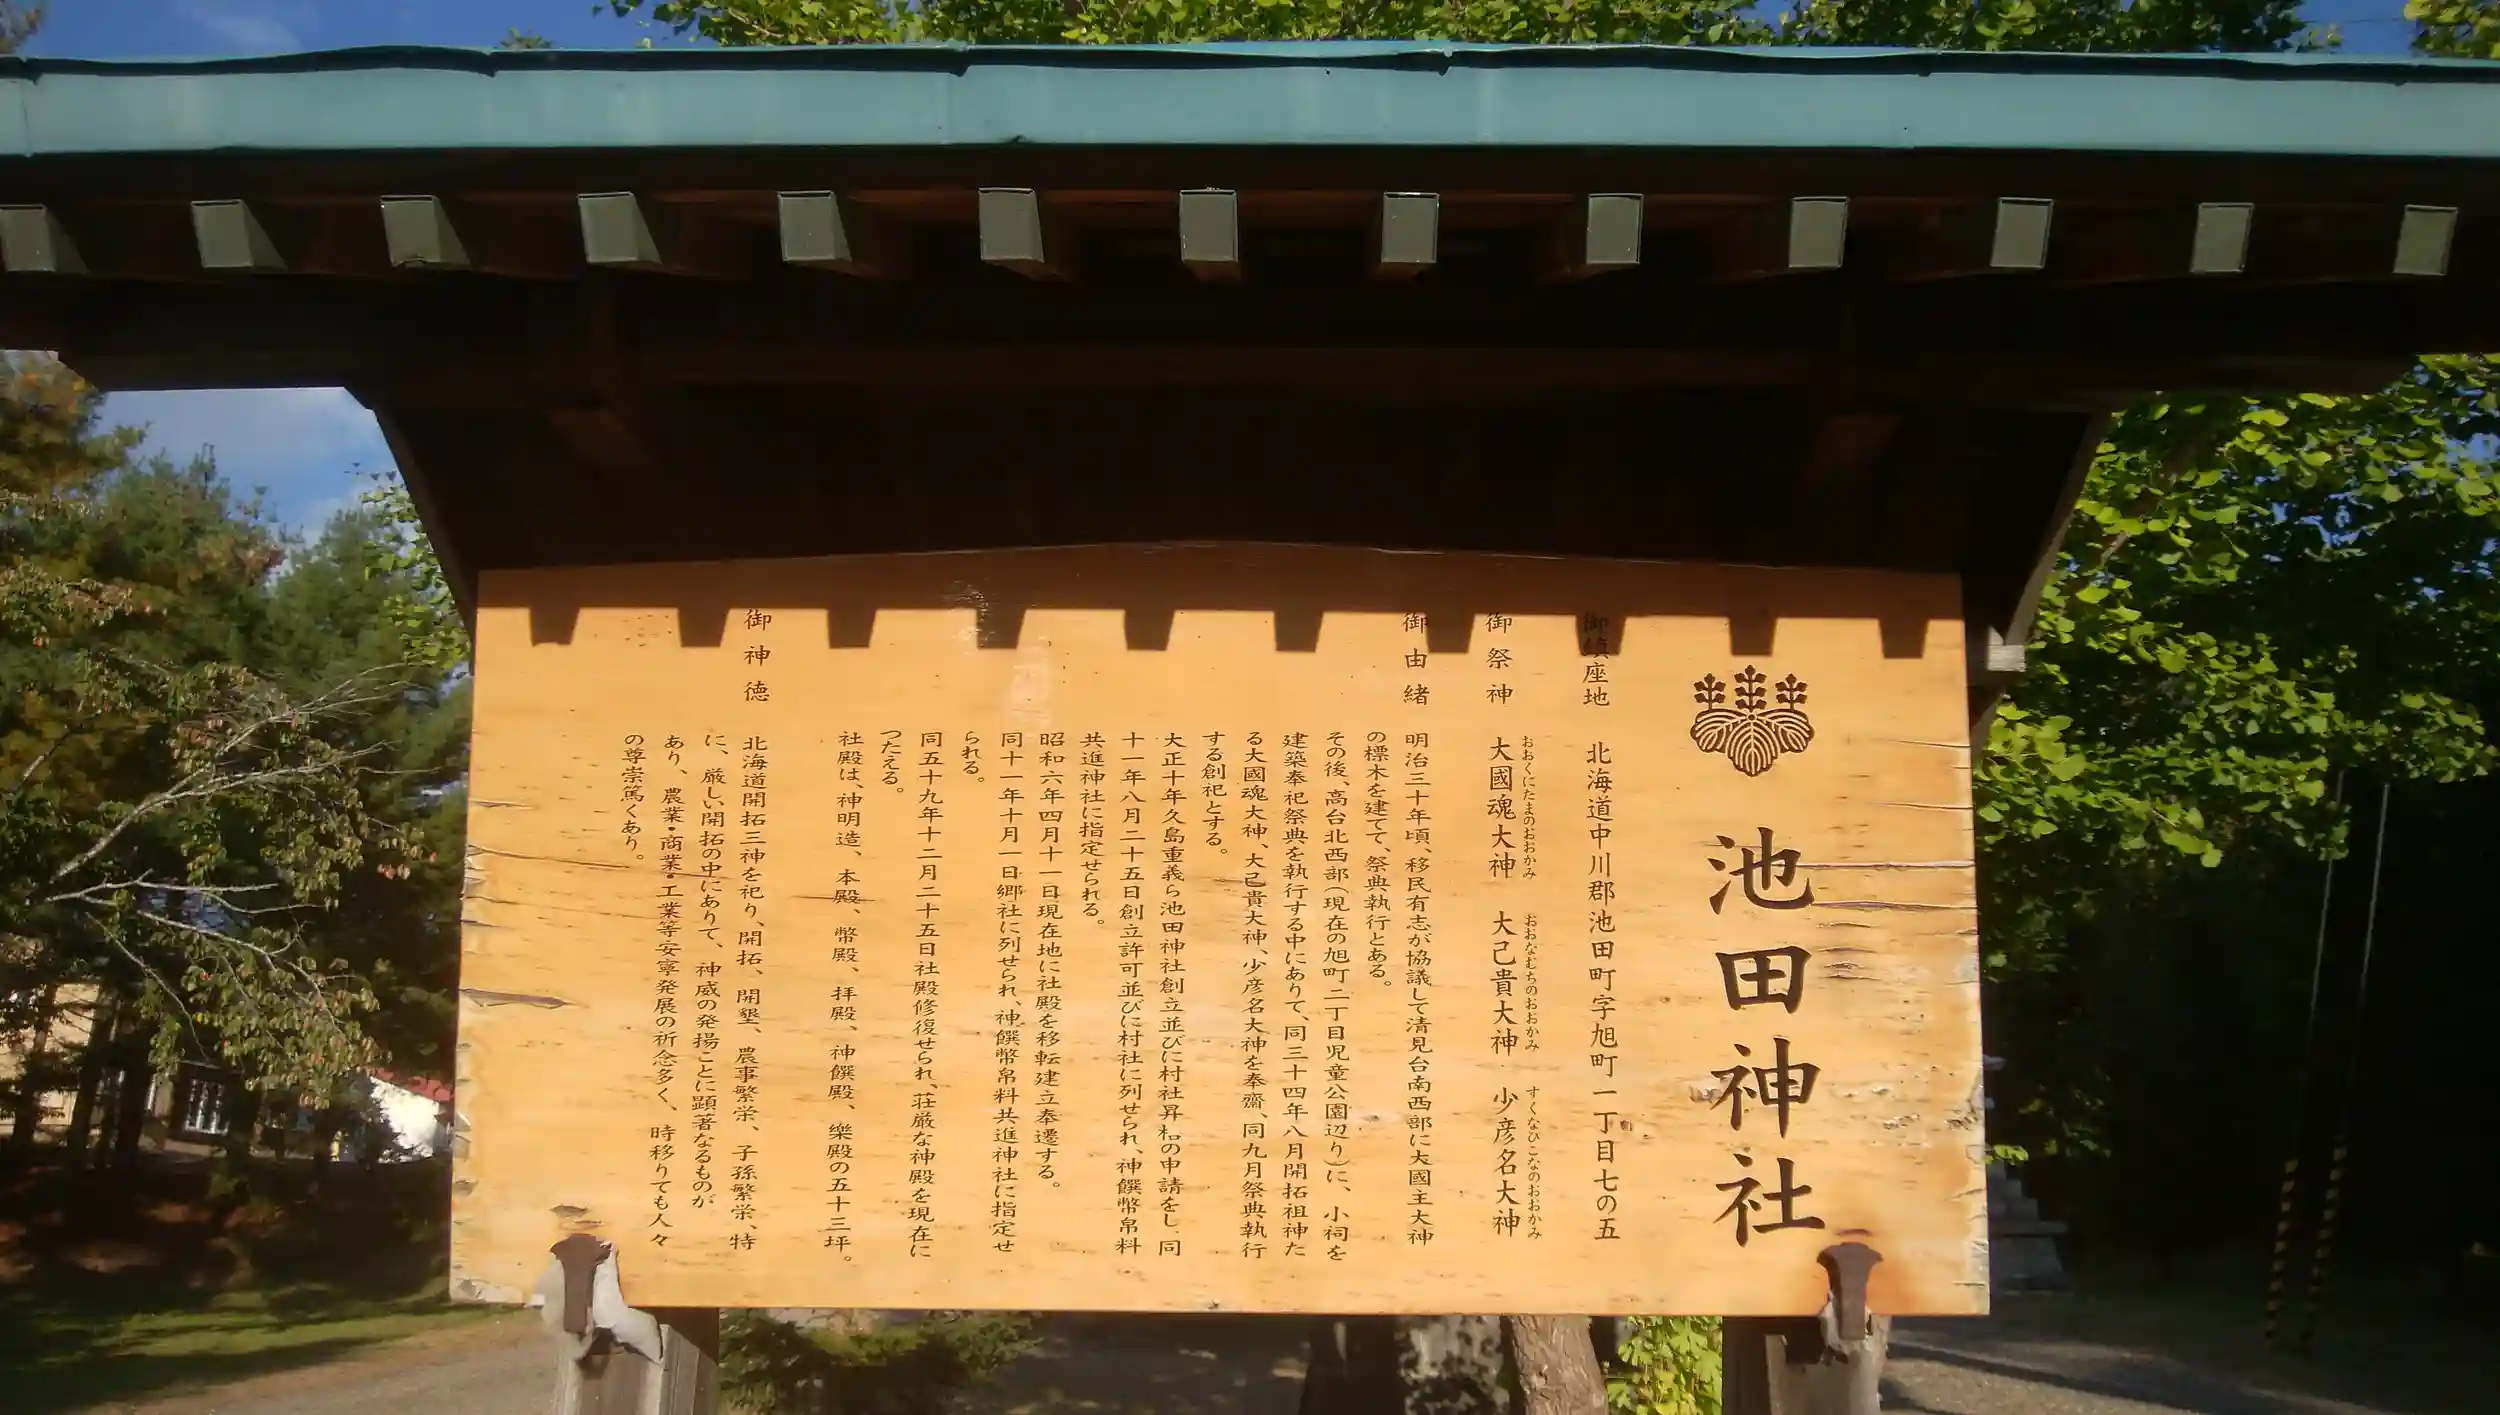 池田神社
御鎮座地 北海道中川郡池田町字旭町一丁目七の五
おおくにたまのおおかみ おおなむちのおおかみ すくなひこなのおおかみ
御祭神 大國魂大神 大己貴大神 少彦名大神
御由緒 明治三十年頃、移民有志が協議して清見台南西部に大國主大神
の標木を建てて、祭典執行とある。
その後、高台北西部(現在の旭町二丁目児童公園辺り)に、小祠を
建築奉祀祭典を執行する中にありて、同三十四年八月開拓祖神た
る大國魂大神、大己貴大神、少彦名大神を奉齋、同九月祭典執行
する創祀とする。
大正十年久島重義ら池田神社創立並びに村社昇格の申請をし、同
十一年八月二十五日創立許可並びに村社に列せられ、神饌幣帛料
共進神社に指定せられる。
昭和六年四月十一日現在地に社殿を移転建立奉遷する。
同十一年十月一日郷社に列せられ、神饌幣帛料共進神社に指定せ
られる。
同五十九年十二月二十五日社殿修復せられ、荘厳な神殿を現在に
つたえる。
社殿は、神明造、本殿、幣殿、拝殿、神饌殿、樂殿の五十三坪。
御神徳 北海道開拓三神を祀り、開拓、開墾、農事繁栄、子孫繁栄、特
に、厳しい開拓の中にありて、神威の発揚ことに顕著なるものが
あり、農業・商業・工業等安寧発展の祈念多く、時移りても人々
の尊崇篤くあり。